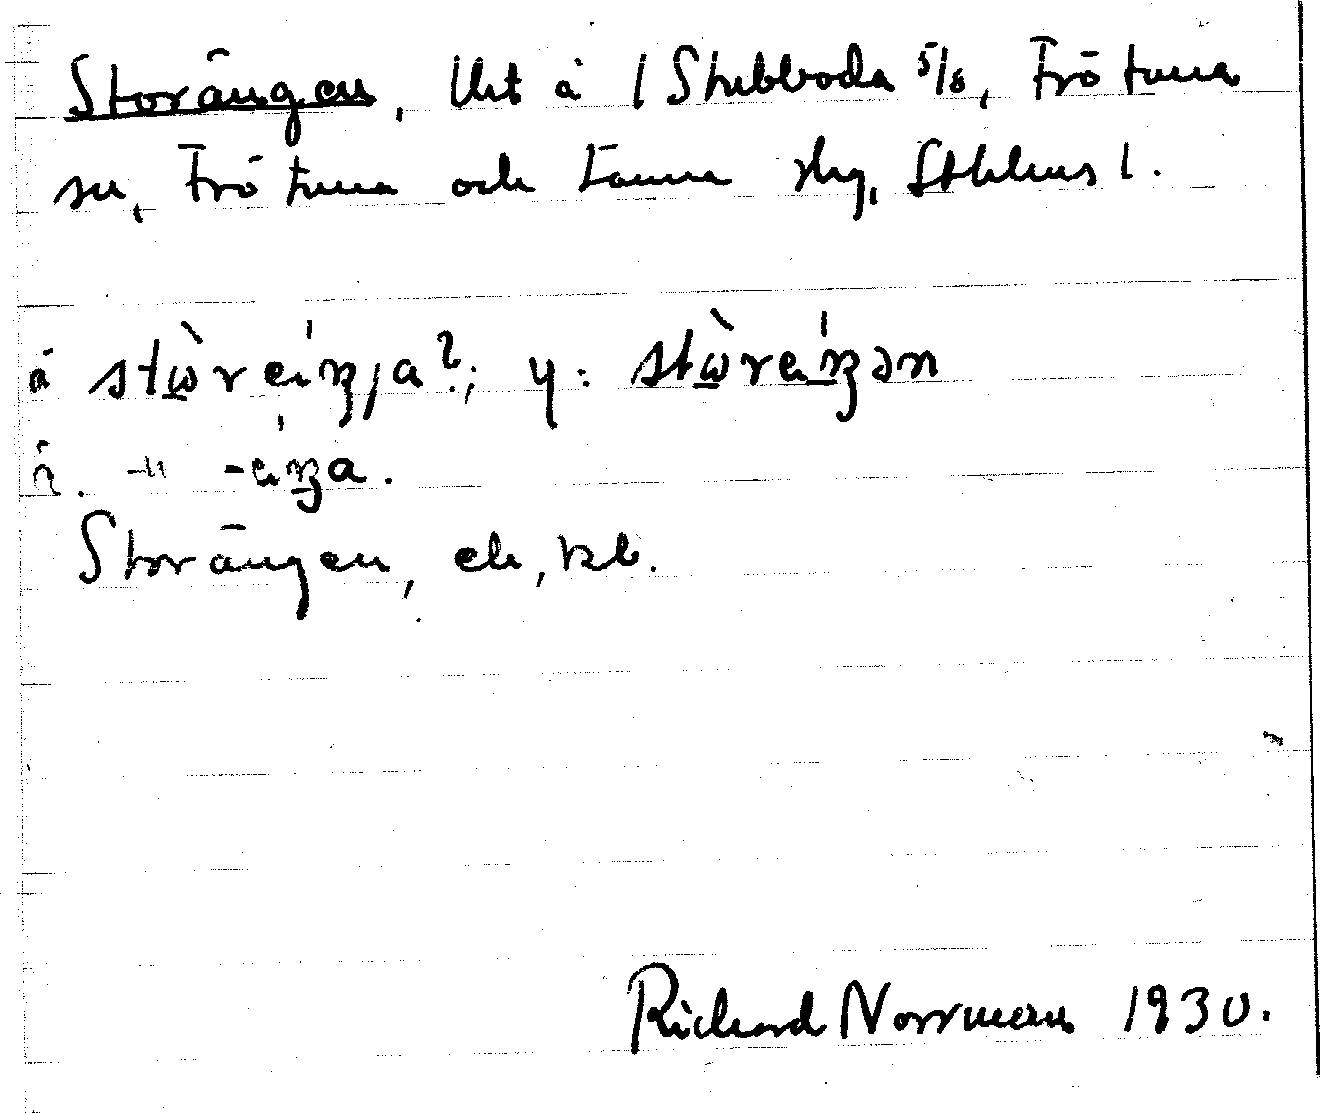 Storängen, Urt å 1 Stubboda 5/8, Frötuna
sn, Frötuna och Länna skg, Sthlms l.
å stὼreŋja?; y: stὼreŋən
i. –"– -eŋa.
Storängen, ek, kbl.
Richard Norrman 1930.